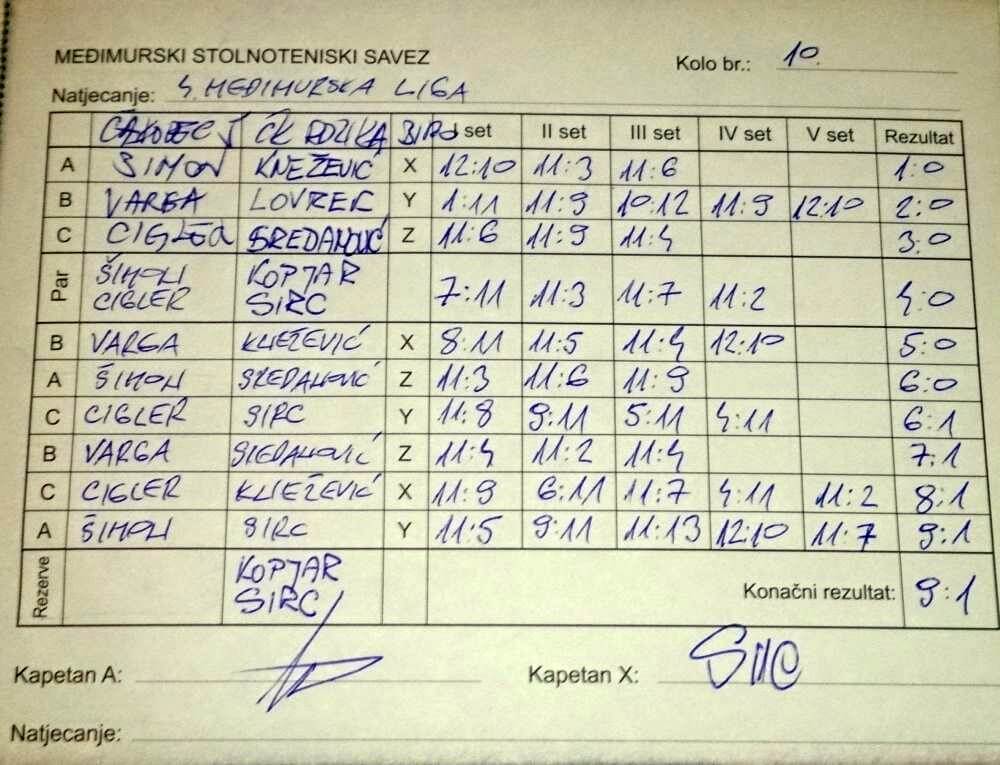 MEĐIMURSKI STOLNOTENISKI SAVEZ
Kolo br.: 10.
Natjecanje: 4. MEĐIMURSKA LIGA
ČAKOVEC ČK I set II set III set IV set V set Rezultat
A ŠIMON KNEŽEVIĆ X 12:10 11:3 11:6 1:0
B VARGA LOVREC Y 1:11 11:9 10:12 11:9 12:10 2:0
C CIGLER SREDANOVIĆ Z 11:6 11:9 11:4 3:0
Par ŠIMON KOPJAR 7:11 11:3 11:7 11:2 4:0
CIGLER SIRC
B VARGA KNEŽEVIĆ X 8:11 11:5 11:4 12:10 5:0
A ŠIMON SREDANOVIĆ Z 11:3 11:6 11:9 6:0
C CIGLER SIRC Y 11:8 9:11 5:11 4:11 6:1
B VARGA SREDANOVIĆ Z 11:4 11:2 11:4 7:1
C CIGLER KNEŽEVIĆ X 11:9 6:11 11:7 4:11 11:2 8:1
A ŠIMON SIRC Y 11:5 9:11 11:13 12:10 11:7 9:1
Rezerve KOPJAR
SIRC
Konačni rezultat: 9:1
Kapetan A:
Kapetan X:
Natjecanje: